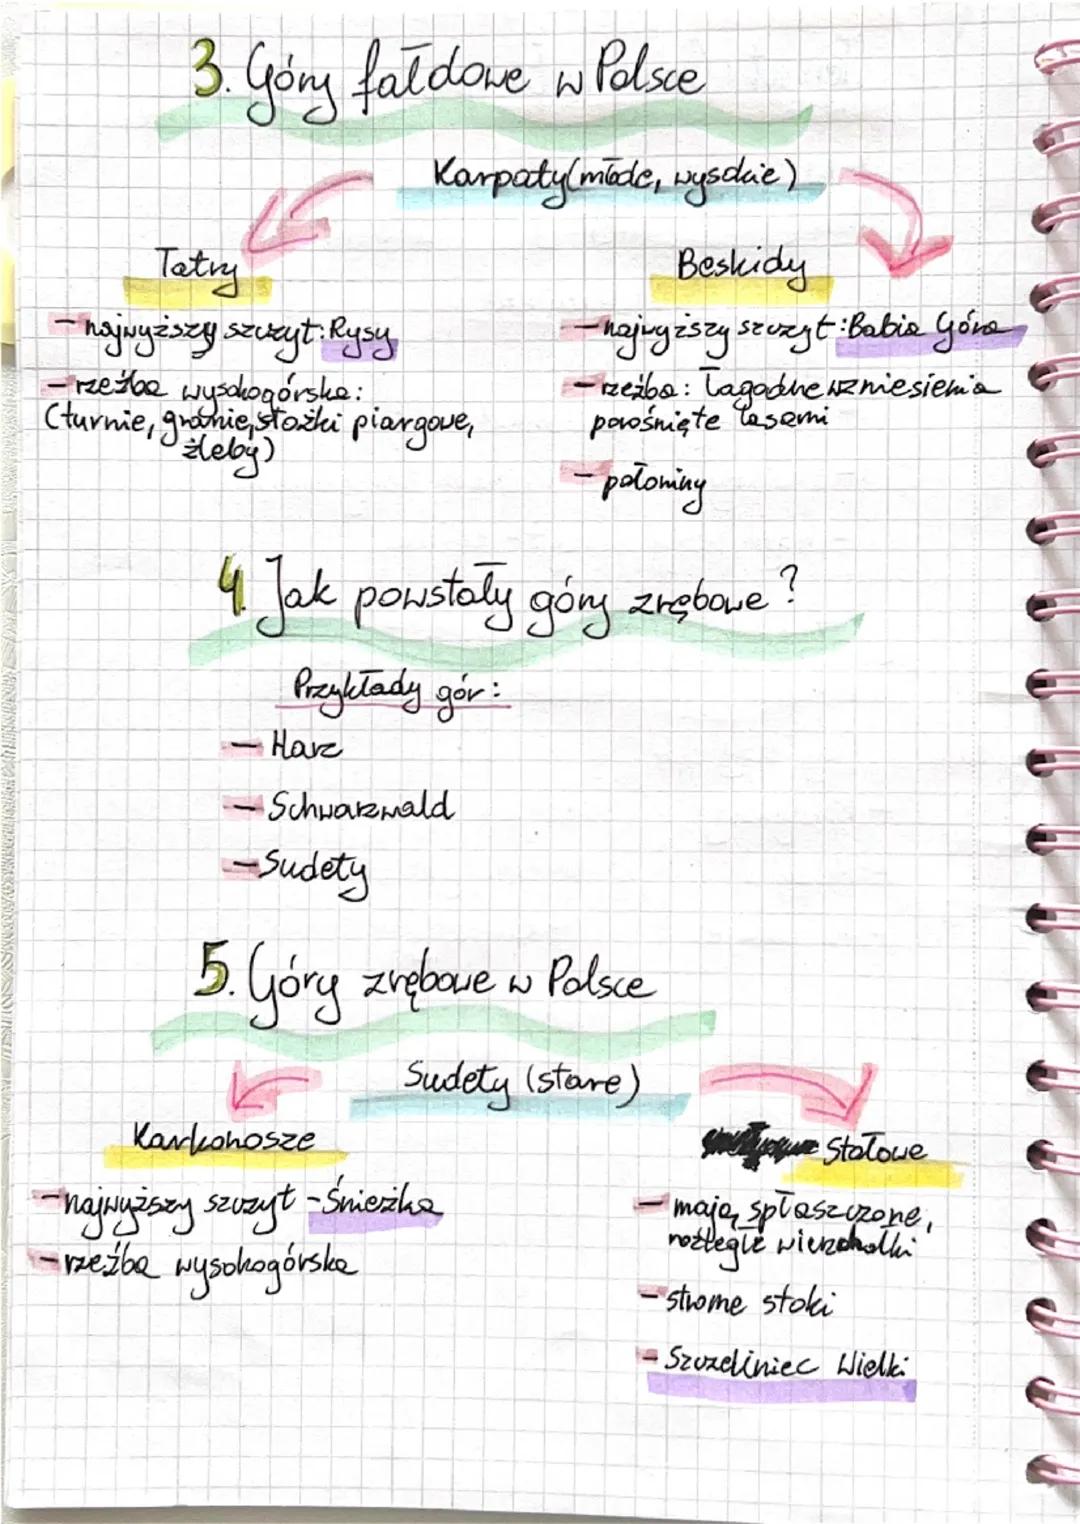 3. Góry fałdowe w Polsce
Karpaty (młode, wysokie)
Tatry
- najwyższy szczyt: Rysy
- rzeźba wysokogórska:
(turnie, granie, stożki piargowe,
żleby)
Beskidy
- najwyższy szczyt: Babia Góra
- rzeźba: łagodne wzniesienia
porośnięte lasami
- połoniny
4. Jak powstały góry zrębowe?
Przykłady gór:
- Harz
- Schwarzwald
- Sudety
5. Góry zrębowe w Polsce
Sudety (stare)
Karkonosze
- najwyższy szczyt - Śnieżka
- rzeźba wysokogórska
Stołowe
- mają spłaszczone,
rozległe wierzchołki
- strome stoki
- Szczeliniec Wielki